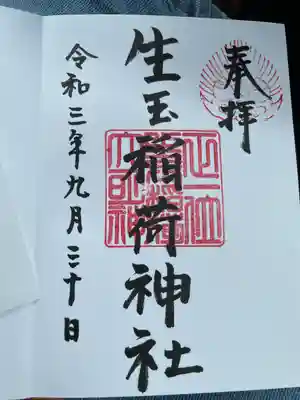 奉拝
生玉稲荷神社
令和三年九月三十日